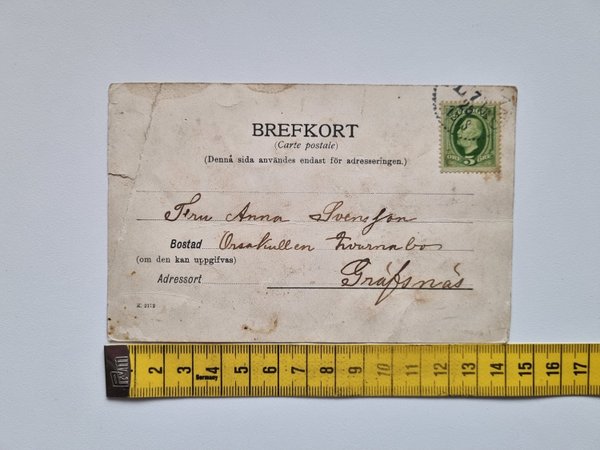 BREFKORT
(Carte postale)
(Denna sida användes endast för adresseringen.)
Fru Anna Svensson
Bostad Orsakullen Kvarnabo
(om den kan uppgifvas)
Gräfsnäs
Adressort
5
ÖRE ÖRE
2 3 4 5 6 7 8 9 10 11 12 13 14 15 16 17
Germany